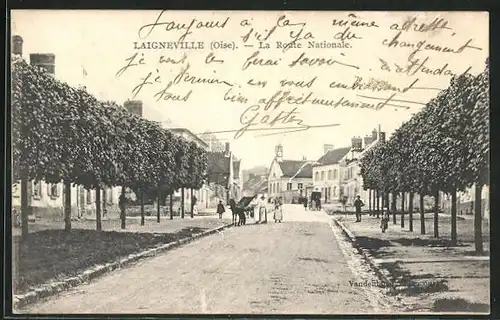 Toujours a la même adresse
s'il y a du changement
LAIGNEVILLE (Oise). — La Route Nationale.
je vous le ferai savoir
en attendant
je termine en vous embrassant
tous bien affectueusement
Gaston